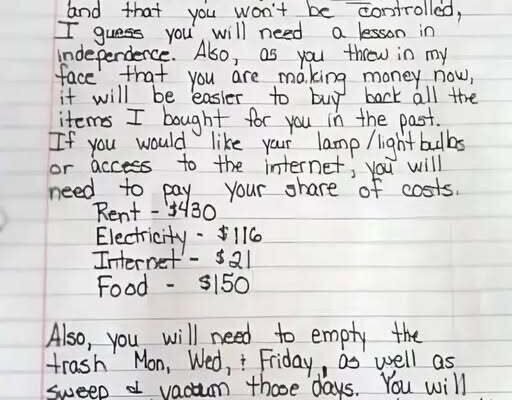 and that you won't be controlled,
I guess you will need a lesson in
independence. Also, as you threw in my
face that you are making money now,
it will be easier to buy back all the
items I bought for you in the past.
If you would like your lamp/lightbulbs
or access to the internet, you will
need to pay your share of costs.
Rent - $430
Electricity - $116
Internet - $21
Food - $150
Also, you will need to empty the
trash Mon, Wed, + Friday, as well as
sweep & vacuum those days. You will